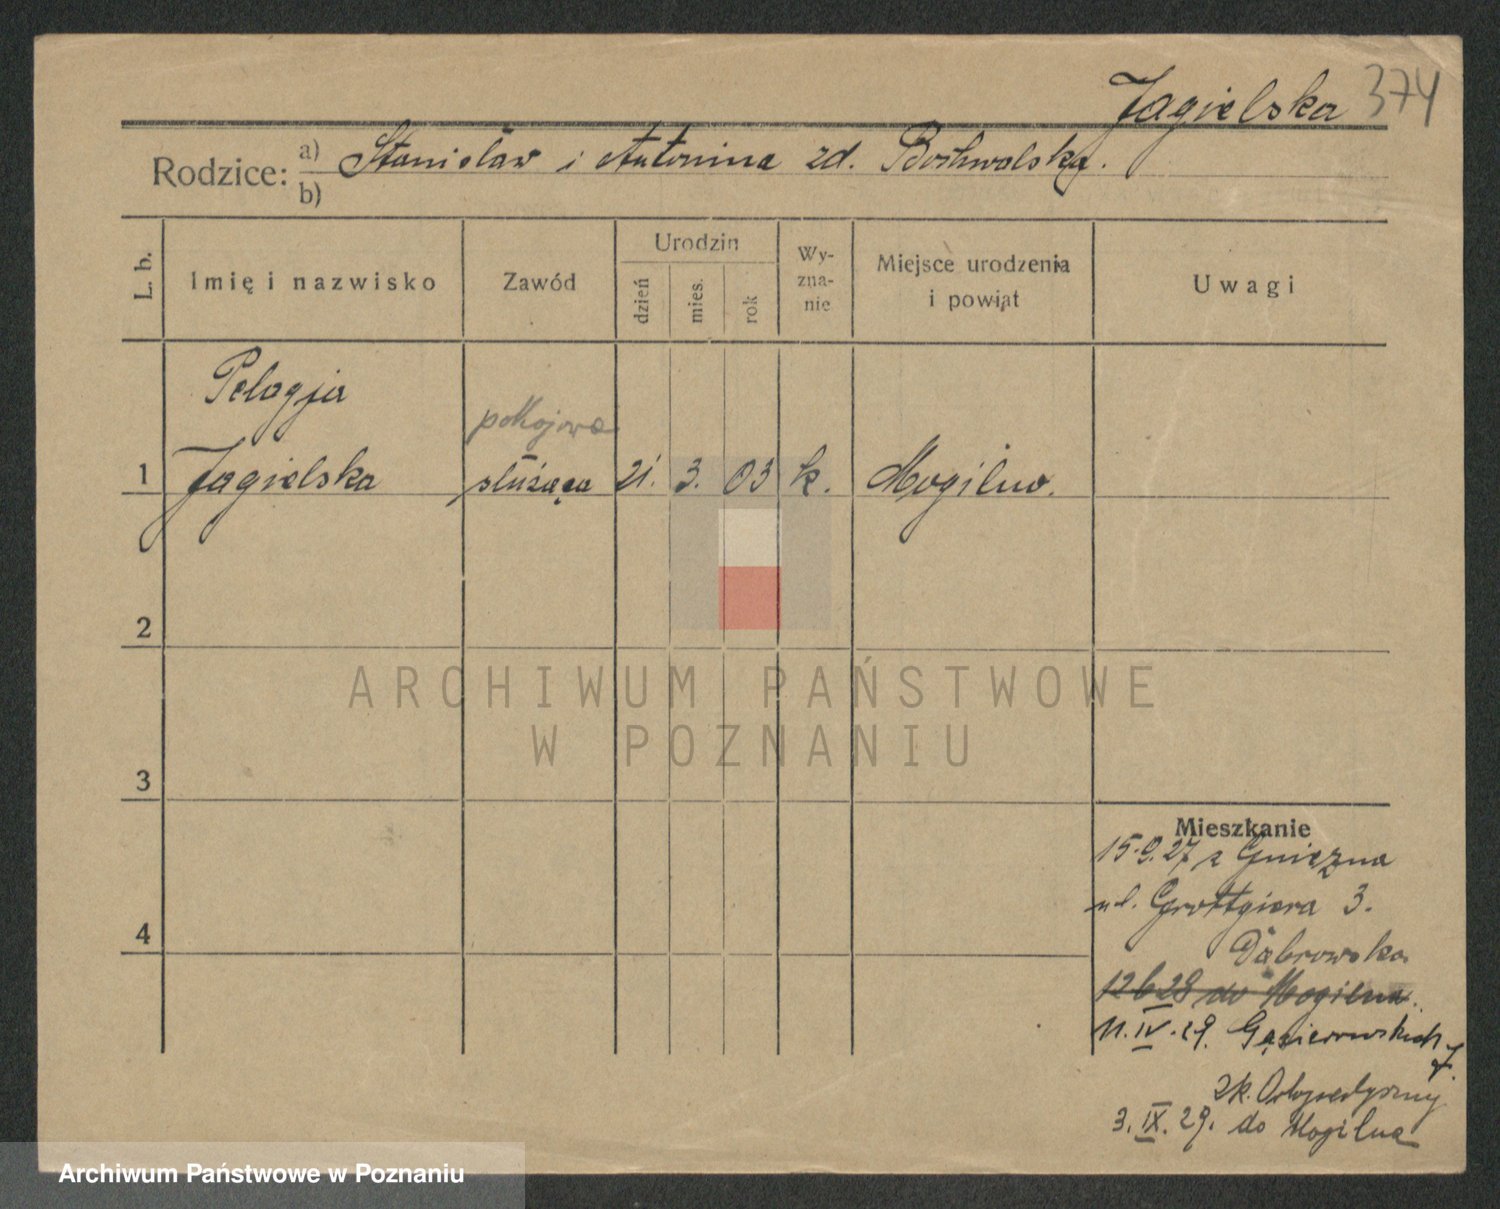 Jagielska 374
Rodzice: a) Stanisław i Antonina zd.
b)
L. b.
Imię i nazwisko
Zawód
Urodzin
dzień
mies.
rok
Wy-
zna-
nie
Miejsce urodzenia
i powiat
Uwagi
Pelagja
pokojowa
1 Jagielska służąca 21. 3. 03 k. Mogilno.
2
ARCHIWUM PAŃSTWOWE
W POZNANIU
3
4
Mieszkanie
15.9.27 z Gniezna
ul. Grottgiera 3.
Dąbrowska
12 6 28 do Mogilna.
11.IV.29. Gąsiorowskich 7.
zk. Ortopedyczny
3.IX.29. do Mogilna
Archiwum Państwowe w Poznaniu